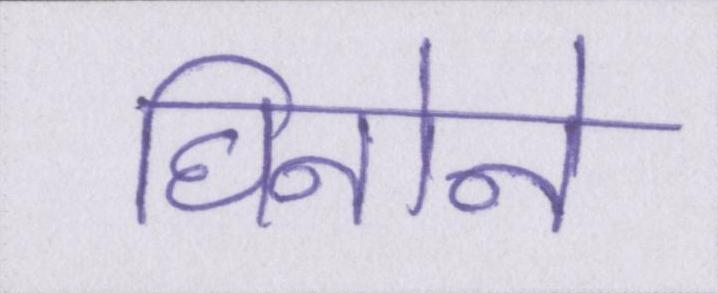 घिनोने